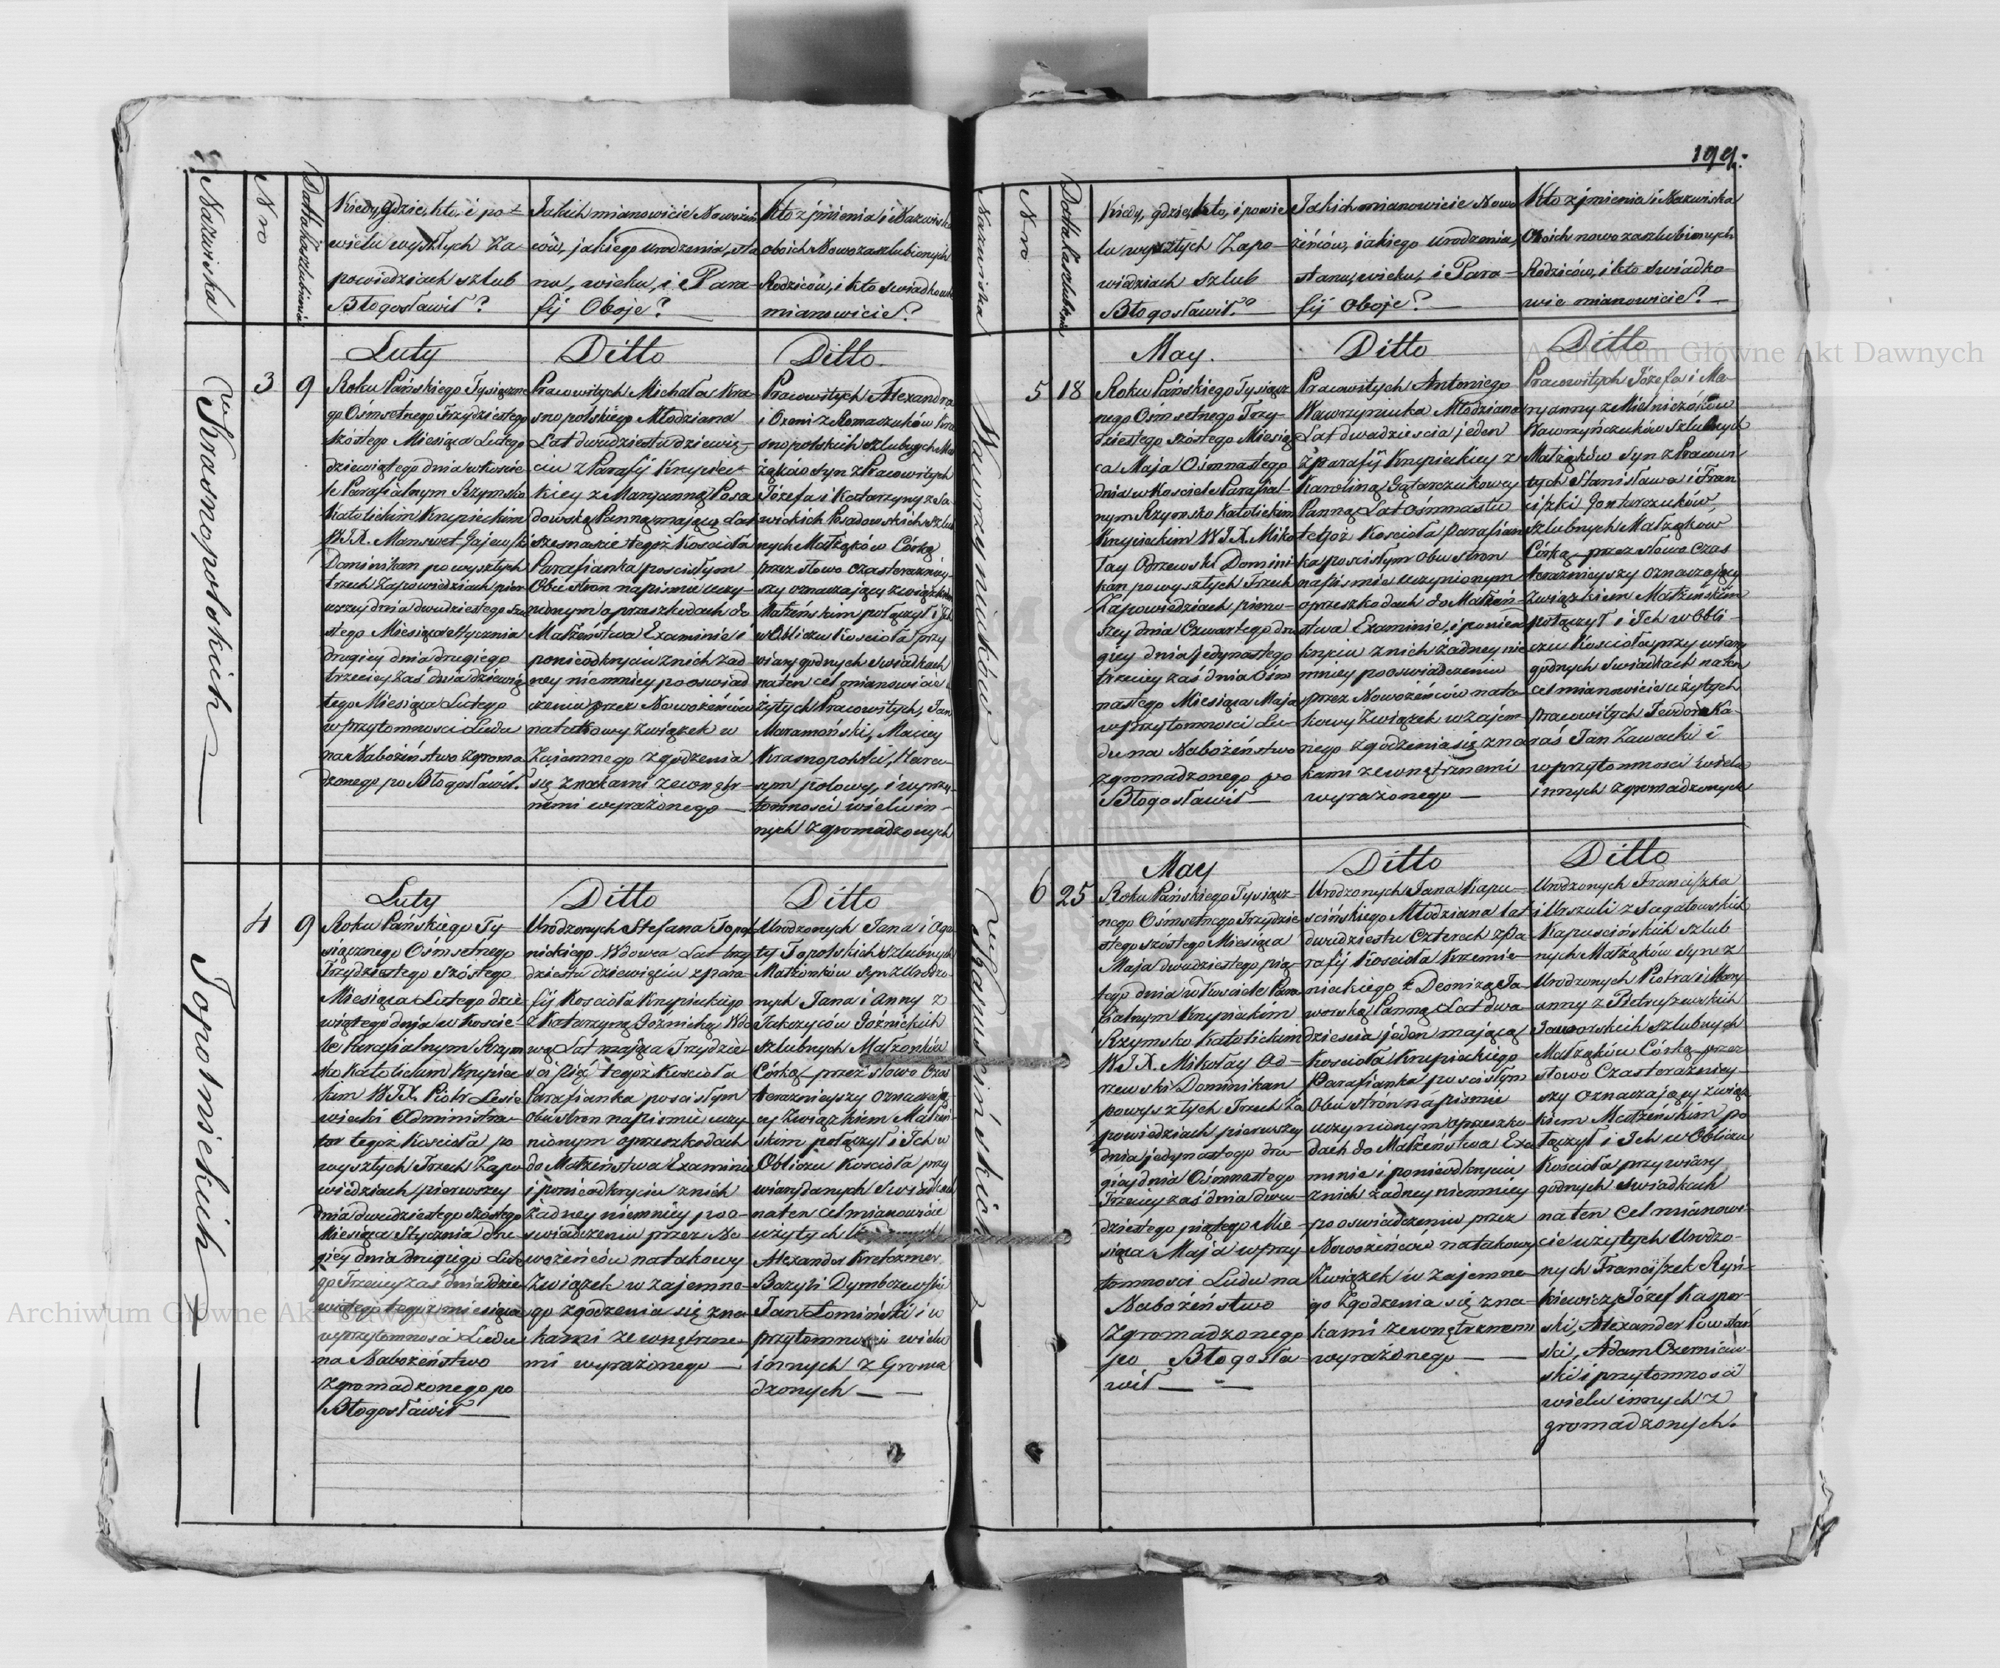 199.
Nazwiska
Nro
Datta Zaszlubienia
Kiedy, gdzie, kto, i po-
wielu wyszłych Za-
powiedziach szlub
Błogosławił?
Jakich mianowicie Nowożeń
ców, jakiego urodzenia, sta
nu, wieku, i Para-
fij Oboje?
Kto z jmienia i Nazwiska
oboich Nowozaszlubionych
Rodziców, i kto swiadkowie
mianowicie?
Krasnopolskich
3
9
Luty
Roku Pańskiego Tysiączne
go Ośmsetnego Trzydziestego
szóstego Miesiąca Lutego
dziewiątego dnia w koscie
le Parafialnym Rzymsko
Katolickim Knysieckim
W.J.X. Manswet Gajewski
Dominikan po wyszłych
trzech Zapowiedziach pier
wszey dnia dwudziestego szó
stego Miesiąca Stycznia
drugiey dnia drugiego
trzeciey zaś dnia dziewią
tego Miesiąca Lutego
w przytomnosci Ludu
na Nabożeństwo zgroma
dzonego po Błogosławił.
Ditto
Pracowitych Michała Kra
snopolskiego Młodziana
Lat dwudziestu dziewię
ciu z Parafij Knysiec-
kiey z Maryanną Posa
dowską Panną mającą Lat
szesnascie tegoż Kosciola
Parafianka poscisłym
Obu stron napismie uczy-
nionym o przeszkodach do
Małżeństwa Examinie i
ponieodkryciu z nich żad
ney niemniey po oswiad
czeniu przez Nowożeńców
natakowy Związek w
Zajemnego zgodzenia
się znakami zewnętrz-
nemi wyrażonego
Ditto
Pracowitych Alexandra
i Oxeni z Romaszuków Kra
snopolskich szlubnych Mał
żąków syn z Pracowitych
Józefa i Katarzyny z Sa
wickich Posadowskich szlub
nych Małżąków Córką
przez słowo czasteraźniey-
szy oznaczający związkiem
Małżeńskim połączył i Ich
w Obliczu Kosciola przy
wiary godnych swiadkach
naten cel mianowicie u
żytych Pracowitych, Jan
Maramoński, Maciey
Krasnopolski, Hara-
sym połowy, i w przy-
tomnosci wielu in-
nych zgromadzonych
Topolnickich
4
9
Luty
Roku Pańskiego Ty-
siącznego Ośmsetnego
Trzydziestego Szóstego
Miesiąca Lutego dzie
wiątego dnia w koscie-
le Parafialnym Rzym
sko Katolickim Knysiec
kim W.J.X. Piotr Lesie
wicki Administra-
tor tegoż Kosciola po
wyszłych Trzech Zapo
wiedziach pierwszey
dnia dwudziestego szóstego
Miesiąca Stycznia dru
giey dnia drugiego Lute
go Trzeciey zaś dnia dzie
wiątego tegoż miesiąca
w przytomnosci Ludu
na Nabożeństwo
zgromadzonego po
Błogosławił
Ditto
Urodzonych Stefana Topol
nickiego Wdowca Lat trzy
dziestu dziewięciu z para
fij Kosciola Knysieckiego
z Katarzyną Goźnicką Wdo
wą Lat mająca Trzydzie
sci pięć tegoż Kosciola
Parafianka poscisłym
obu stron napismie uczy
nionym o przeszkodach
do Małżeństwa Examinie
i ponieodkryciu z nich
żadney niemniey poo-
swiadczeniu przez No
wożeńców natakowy
Związek wzajemne-
go zgodzenia się zna
kami zewnętrzne-
mi wyrażonego
Ditto
Urodzonych Jana i Aga
ty Topolskich szlubnych
Małżonków Syn z Urodzo
nych Jana i Anny z
Jakozyców Goźnickich
szlubnych Małżonków
Córką przez słowo Czas
teraznieyszy oznaczają
cy Związkiem Małżeń
skim połączył i Ich w
Obliczu Kosciola przy
wiary danych Swiadkach
naten cel mianowicie
użytych
Alexander Kretzmer
Bazyli Dymbczewski
Jan Łomiński i w
przytomnosci wielu
innych z Groma
dzonych
Nazwiska
Nro
Datta Zaszlubienia
Kiedy, gdzie, kto, i powie
lu wyszłych Zapo-
wiedziach szlub
Błogosławił?
Jakich mianowicie Nowo
żeńców, iakiego urodzenia,
stanu, wieku, i Para-
fij Oboje?
Kto z jmienia i Nazwiska
Oboich nowozaszlubionych
Rodziców, i kto swiadko-
wie mianowicie?
Wawrzyniuków
5
18
May.
Roku Pańskiego Tysiącz
nego Ośmsetnego Trzy-
dziestego szóstego Miesią
ca Maja Ośmnastego
dnia w Kosciele Parafial-
nym Rzymsko Katolickim
Knysieckim W.J.X. Miko
łay Odrzewski Domini
kan powyszłych Trzech
Zapowiedziach pierw-
szey dnia Czwartego dru
giey dnia jedynastego
trzeciey zaś dnia Ośm
nastego Miesiąca Maja
w przytomnosci Lu-
du na Nabożeństwo
zgromadzonego po
Błogosławił
Ditto
Pracowitych Antoniego
Wawrzyniuka Młodziana
Lat dwadziescia jeden
z parafij Knysieckiey z
Karoliną Gątarczukowey
Panną Lat ośmnastu
teyoż Kosciola Parafian
ka poscisłym obu stron
napismie uczynionym
o przeszkodach do Małżeń-
stwa Examinie, i ponieod
kryciu z nich żadney nie
mniey pooswiadczeniu
przez Nowożeńców nata-
kowy Związek wzajem-
nego zgodzenia się zna
kami zewnętrznemi
wyrażonego
Ditto
Pracowitych Józefa i Ma-
ryanny z Mielniczuków
Wawrzyńczuków Szlubnych
Małżąków syn z Pracowi
tych Stanisława i Fran
ciszki Gontarczuków,
szlubnych Małżąków
Córką przez słowo czas
teraznieyszy oznaczający
związkiem Małżeńskim
połączył i Ich w Obli-
czu Kosciola przy wiary
godnych swiadkach naten
cel mianowicie użytych
Pracowitych Teodor Ka-
raś Jan Zawacki i
w przytomnosci wielu
innych zgromadzonych
Kapuscińskich
6
25
May
Roku Pańskiego Tysiącz-
nego Ośmsetnego Trzydzie
stego szóstego Miesiąca
Maja dwudziestego pią-
tego dnia w Kosciele Para
fialnym Knysieckim
Rzymsko Katolickim
W.J.X. Mikołay Od-
rzewski Dominikan
powyszłych Trzech Za
powiedziach pierwszey
dnia jedynastego dru-
giey dnia Ośmnastego
Trzeciey zaś dnia dwu-
dziestego piątego Mie-
siąca Maja w przy
tomnosci Ludu na
Nabożeństwo
Zgromadzonego
po Błogosła-
wił
Ditto
Urodzonych Jana Kapu-
scińskiego Młodziana lat
dwudziestu Czterech z Pa
rafij Kosciola Krzemie-
nieckiego z Deonizą Ja
worską Panną Lat dwa
dziescia jeden mającą
Kosciola Knysieckiego
Parafianka poscisłym
Obu strón napismie
uczynionym o przeszko
dach do Małżeństwa Exa
minie i ponieodkryciu
z nich żadney niemniey
pooswiadczeniu przez
Nowożeńców natakowy
Związek w Zajemne-
go Zgodzenia się zna-
kami zewnętrznemi
wyrażonego
Ditto
Urodzonych Franciszka
i Urszuli z Sagatowskich
Kapuscińskich szlub-
nych Małżąków syn z
Urodzonych Piotra i Mary
anny z Pietruszewskich
Jaworskich szlubnych
Małżąków Córką przez
słowo Czasteraźniey-
szy oznaczający związ
kiem Małżeńskim po
łączył i Ich w Obliczu
Kosciola przy wiary
godnych swiadkach
na ten Cel mianowi-
cie użytych Urodzo-
nych Franciszek Ryń-
kiewicz, Józef Kaspor-
ski, Alexander Powstań
ski, Adam Czerniaw-
ski i przytomnosci
wielu innych z
gromadzonych.
Archiwum Główne Akt Dawnych
Archiwum Główne Akt Dawnych